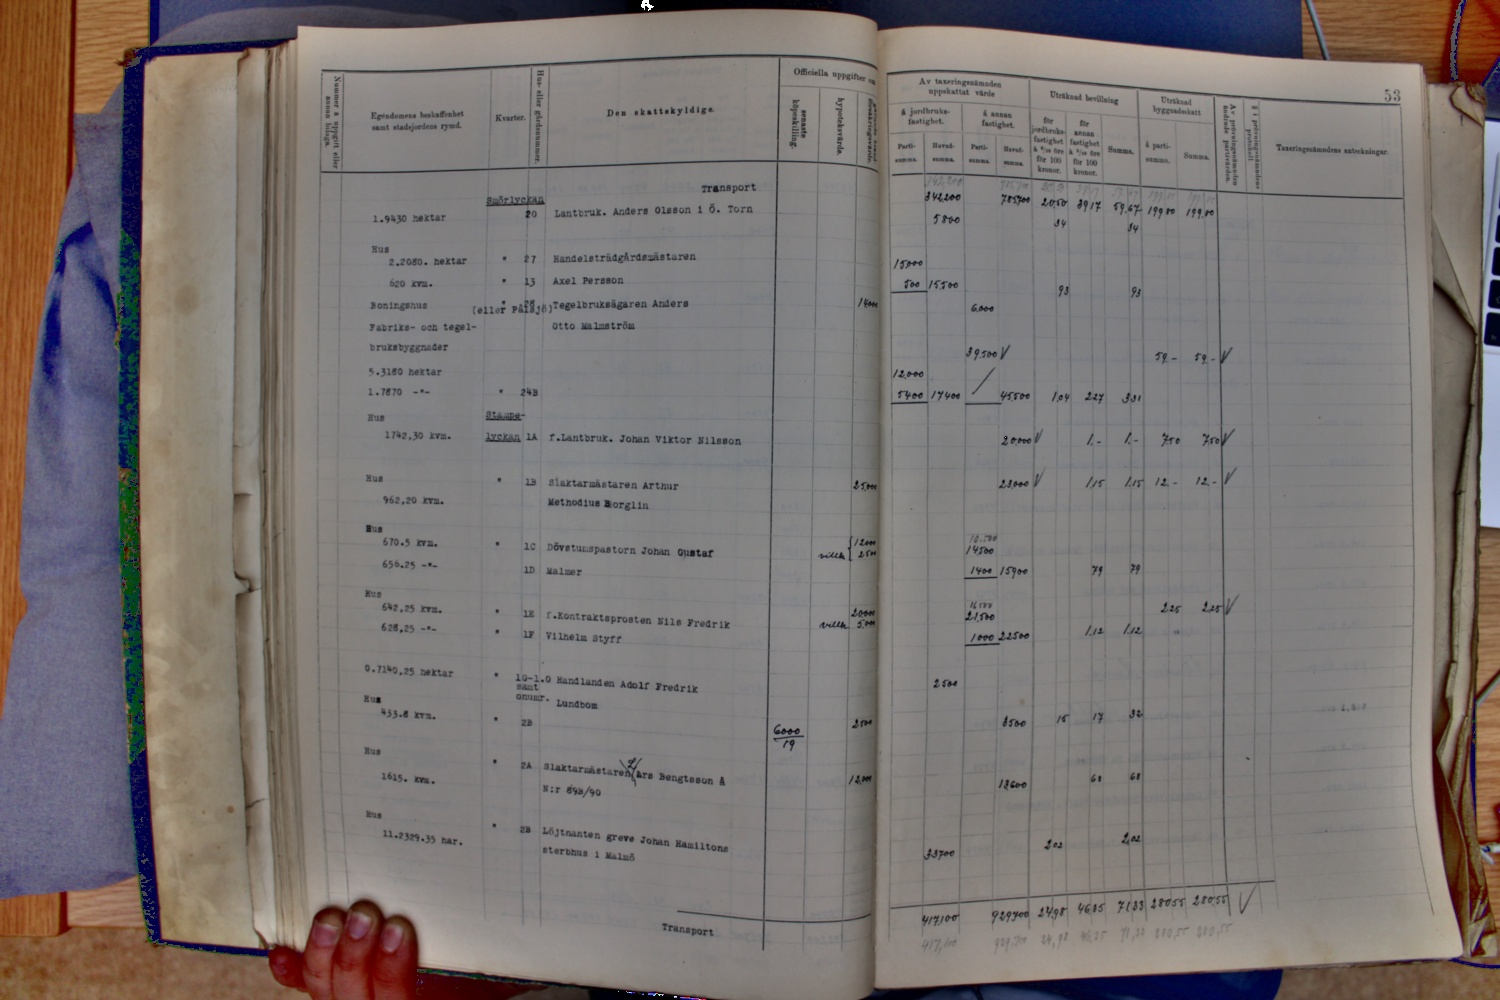 53
Nummer å uppgift eller annan bilaga.
Egendomens beskaffenhet samt stadsjordens rymd.
Kvarter.
Hus- eller gårdsnummer.
Den skattskyldige.
Officiella uppgifter om
senaste köpeskilling.
hypoteksvärde.
Av taxeringsnämnden uppskattat värde
å jordbruksfastighet.
å annan fastighet.
Partisumma.
Huvudsumma.
Partisumma.
Huvudsumma.
Uträknad bevillning
för jordbruksfastighet
för 100 kronor.
för annan fastighet
för 100 kronor.
Summa.
Uträknad byggnadsskatt
å partisumma.
Summa.
Taxeringsnämndens anteckningar.
Transport 342,200 785,700 20,50 39,17 59,67 199,80 199,80
Smörlyckan
1.9430 hektar 20 Lantbruk. Anders Olsson i Ö. Torn 5800 34 34
Hus
2.2080. hektar " 27 Handelsträdgårdsmästaren 15,000
620 kvm. " 13 Axel Persson 500 15,500 93 93
Boningshus " 28 (eller Pålsjö) Tegelbruksägaren Anders 14000 6,000
Fabriks- och tegel- Otto Malmström
bruksbyggnader 39,500 59.- 59.-
5.3180 hektar 12,000
1.7870 -"- " 24B 5400 17400 45,500 1,04 2,27 3,31
Hus Stampe-
1742,30 kvm. lyckan 1A f.Lantbruk. Johan Viktor Nilsson 20,000 1.- 1.- 7,50 7,50
Hus " 1B Slaktarmästaren Arthur 25,000 23,000 1,15 1,15 12.- 12.-
962,20 kvm. Methodius Borglin
Hus
670.5 kvm. " 1C Dövstumspastorn Johan Gustaf villa 12000 2500 14500
656.25 -"- 1D Malmer 1400 15900 79 79
Hus
642,25 kvm. " 1E f.Kontraktsprosten Nils Fredrik villa 20000 5000 21,500 2,25 2,25
628,25 -"- " 1F Vilhelm Styff 1000 22500 1,12 1,12
0.7140,25 hektar " 1G-1.O samt onumr. Handlanden Adolf Fredrik 2500
Hus Lundbom
433.8 kvm. " 2B 6000/19 2500 3500 15 17 32
Hus " 2A Slaktarmästaren Lars Bengtsson å 12,000
1615. kvm. N:r 89B/90 13600 68 68
Hus " 2B Löjtnanten greve Johan Hamiltons
11.2329.35 har. sterbhus i Malmö 33700 2,02 2,02
Transport 417,100 929,700 24,98 46,35 71,33 280,55 280,55
417,100 929,700 24,98 46,35 71,33 280,55 280,55